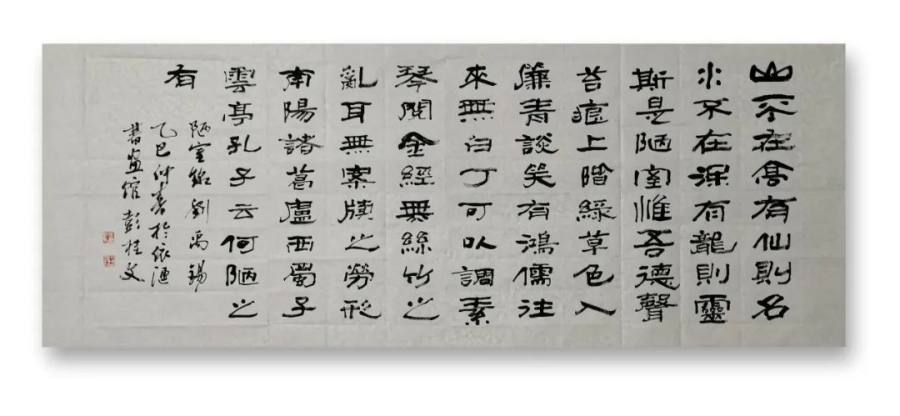 山不在高有仙則名
水不在深有龍則靈
斯是陋室惟吾德聲
苔痕上階綠草色入
簾青談笑有鴻儒往
來無白丁可以調素
琴閱金經無絲竹之
亂耳無案牘之勞形
南陽諸葛廬西蜀子
雲亭孔子云何陋之
有
陋室銘劉禹錫
乙巳仲春於依蓮
書畫館彭桂文